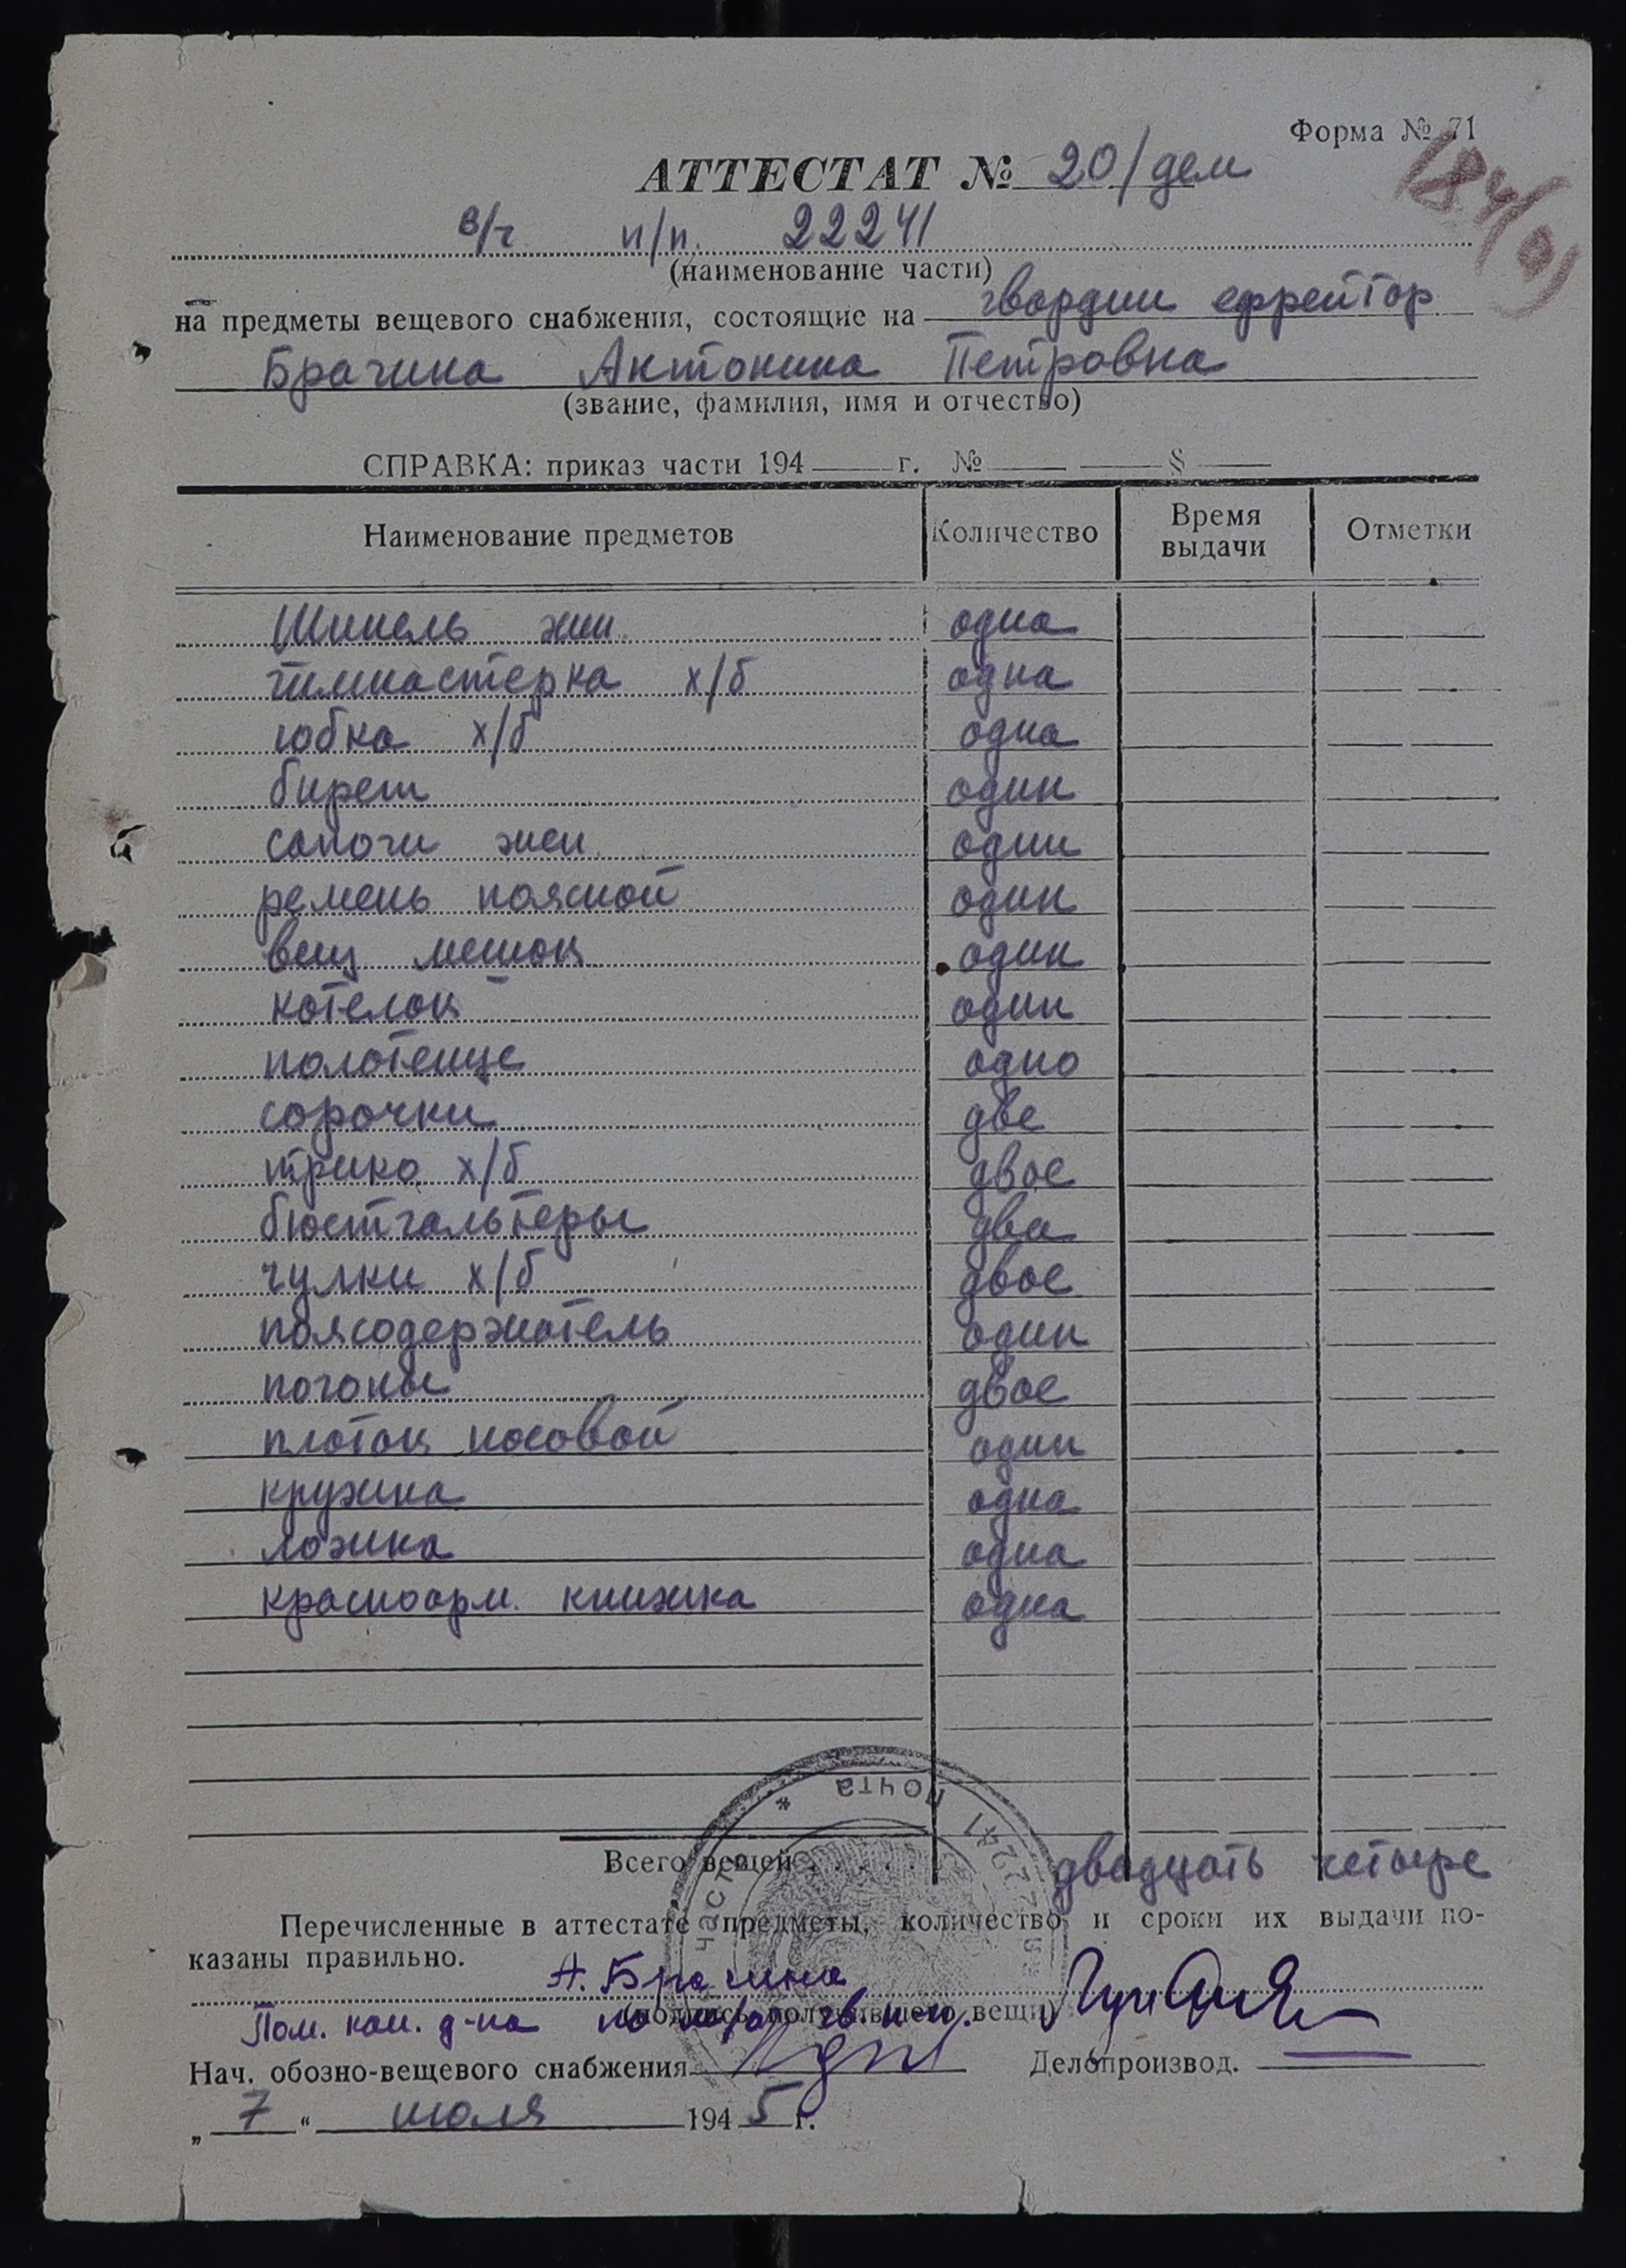 Форма № 71
АТТЕСТАТ № 20/дем
184/9)
в/ч п/п. 22241
(наименование части)
на предметы вещевого снабжения, состоящие на гвардии ефрейтор
Брагина Антонина Петровна
(звание, фамилия, имя и отчество)
СПРАВКА: приказ части 194 г. № §
Наименование предметов Количество Время выдачи Отметки
Шинель жен. одна
гимнастерка х/б одна
юбка х/б одна
бирет один
сапоги жен. один
ремень поясной один
вещ мешок один
котелок один
полотенце одно
сорочки две
трико х/б двое
бюстгальтеры два
чулки х/б двое
поясодержатель один
погоны двое
платок носовой один
кружка одна
ложка одна
красноарм. книжка одна
Всего вещей . . . . . двадцать четыре
Перечисленные в аттестате предметы, количество и сроки их выдачи по-
казаны правильно.
А. Брагина
(подпись получившего вещи)
Пом. ком. д-на по
Нач. обозно-вещевого снабжения Делопроизвод.
„ 7 “ июля 1945 г.
часть * почта 22241